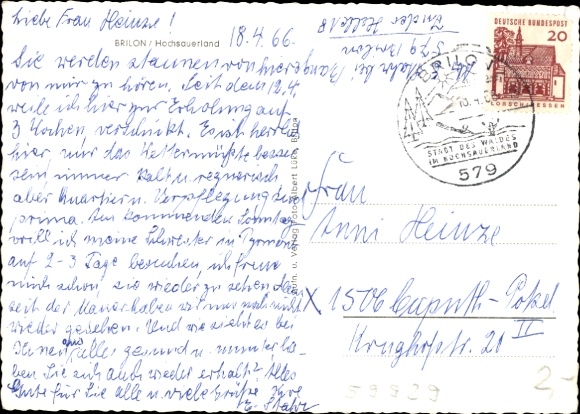 Liebe Frau Heinze!
BRILON / Hochsauerland
18.4.66.
Sie werden staunen von hier aus
von mir zu hören. Seit dem 12.4.
weile ich hier zur Erholung auf
3 Wochen verschickt. Es ist herrlich
hier, nur das Wetter müßte besser
sein immer kalt u. regnerisch
aber Quartier u. Verpflegung sind
prima. Am kommenden Sonntag
will ich meine Schwester in Pyrmont
auf 2-3 Tage besuchen, ich freue
mich schon, sie wieder zu sehen denn
seit der Mauer haben wir uns noch nicht
wieder gesehen. Und wie sieht es bei
Ihnen aus, alles gesund u. munter ha-
ben Sie sich auch wieder erholt? Alles
Gute für Sie alle u. viele Grüße Ihre
E.
579 Brilon
DEUTSCHE BUNDESPOST
20
LORSCH/HESSEN
BRILON
STADT DES WALDES
IM HOCHSAUERLAND
579
Frau
Anni Heinze
X 1506 Caputh-Potsd.
Krughofstr. 20 II
59929
2,-